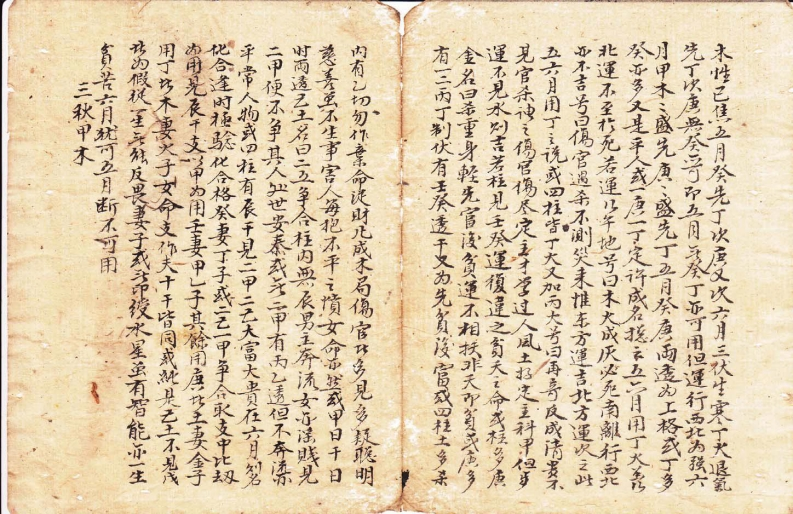 木性已焦五月癸先丁次庚又次六月三伏生寒丁火退氣
先丁次庚無癸亦可即五月無癸丁亦可用但運行西北為殃六
月甲木木盛先庚庚盛先丁五月癸庚兩透為上格或丁多
癸亦多又是平人或一庚一丁定許成名總云五六月用丁火蓋
北運不至於死若運行午地号曰木火成灰必死南離行西北
亦不吉号曰傷官遇杀不測災来惟东方運吉北方運次之此
五六月用丁之說或四柱皆丁火又加丙火号曰再竒反成清貴不
見官杀神之傷官傷尽定主才学过人風土招定主科甲但歩
運不見水则吉若柱見壬癸運復違之貧夭之命或柱多庚
金名曰杀重身軽先富後貧運不相扶非夭即貧或庚多
有一二丙丁制伏有壬癸透干又为先貧後富或四柱土多乘
内有乙切勿作棄命従財凡成木局傷官此多見多疑聪明
慈善虽不生事害人每抱不平之墳女命亦然或甲日干日
时两透己土名曰二五争合柱内無辰男主奔流女亦淫賤見
二甲便不争其人処世安泰或此二甲有丙乙透但不奔流
平常人物或四柱有辰干見二甲二乙大富大貴在六月名
化合逢时極騐化合格癸妻丁子或二乙一甲争合取支中比刼
為用見辰干支以甲为用壬妻甲乙子其餘用庚此土妻金子
用丁此木妻火子女命支作夫十干皆同或純是乙土不見戊
此为假從一生無能反畏妻子或無印绶水星虽有智能亦一生
貧苦六月犹可五月断不可用
三秋甲木